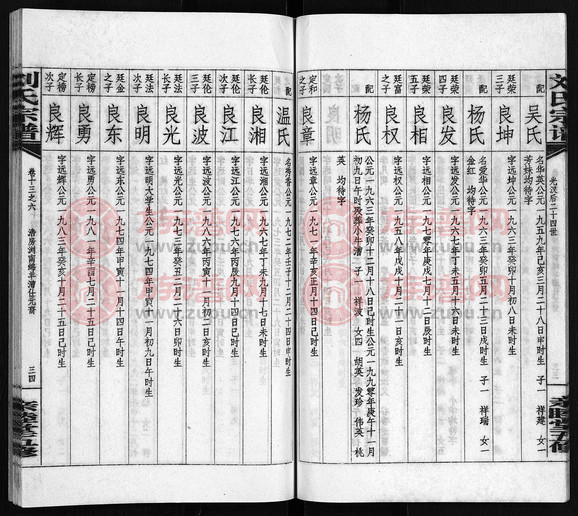 刘氏宗谱
光汉后二十四世
亲睦堂五修
配 吴氏 名华英公元一九五九年己亥三月二十八日申时生 子一 祥建 女一
芳妹均待字
廷荣三子 良坤 字远坤公元一九六三年癸卯十二月初八日未时生
配 杨氏 名爱华公元一九六三年癸卯五月二十三日戌时生 子一 祥瑞 女一
金红 均待字
廷荣四子 良发 字远发公元一九六七年丁未五月十六日亥时生
廷荣五子 良相 字远相公元一九七零年庚戌七月十二日辰时生
廷富之子 良权 字远权公元一九五八年戊戌十月二十一日寅时生
配 杨氏 公元一九六三年癸卯十二月十八日己时生公元一九九零年庚午十一月
初九日午时殁葬小牛漕 子一 祥波 女四 胡英 发珍 伟英 桃
英 均待字
定和之子 良章 字远章公元一九七一年辛亥正月十四日亥时生
配 温氏 公元一九七二年壬子十二月二十四日申时生
廷伦长子 良湘 字远湘公元一九六七年丁未九月十七日未时生
廷伦次子 良江 字远江公元一九七六年丙辰九月十四日己时生
廷伦三子 良波 字远波公元一九八二年
廷法长子 良光 字远光公元一九七三年癸丑二月二十六日卯时生
廷法次子 良明 字远明大学生公元一九七四年甲寅十一月初九日午时生
廷金之子 良东 字远东公元一九七四年甲寅十一月十四日午时生
定榜长子 良勇 字远勇公元一九八一年辛酉七月二十五日己时生
定榜次子 良辉 字远辉公元一九八三年癸亥十月二十五日己时生
刘氏宗谱
卷十三之六
浩房浏南绵羊漕仕元斋
三四
亲睦堂五修
族谱网
www.zupu.cn
族谱网
www.zupu.cn